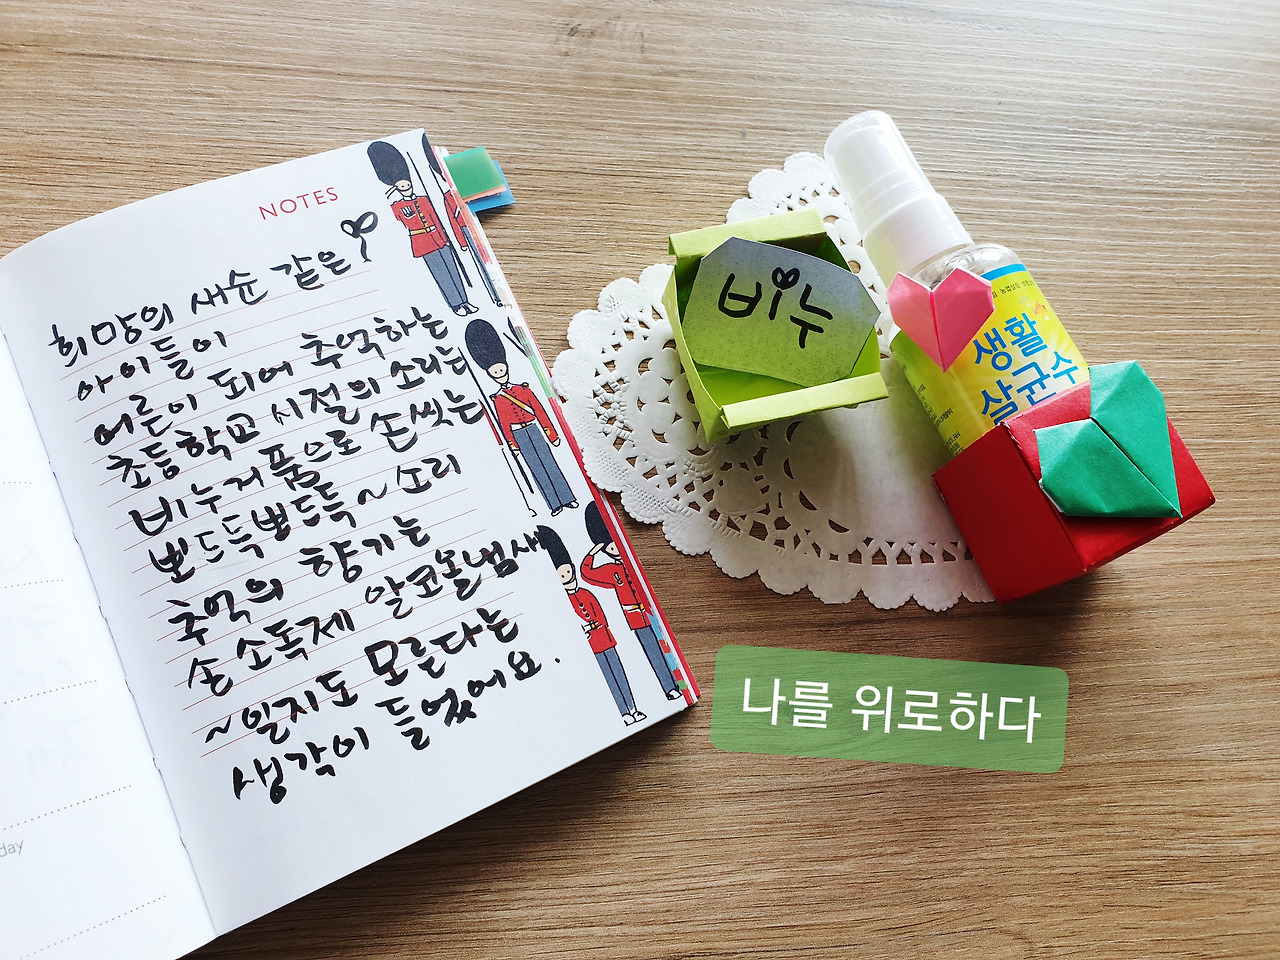 NOTES
희망의 새순 같은
아이들이
어른이 되어 추억하는
초등학교 시절의 소리는
비누거품으로 손씻는
뽀드득뽀드득~소리
추억의 향기는
손소독제 알코올냄새
~일지도 모른다는
생각이 들었어요.
day
비누
생활
살균수
나를 위로하다